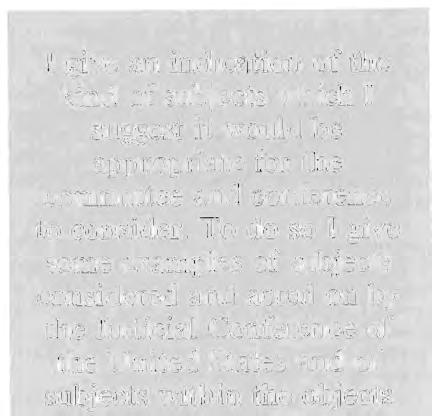 I give an indication of the
kind of subjects which I
suggest it would be
appropriate for the
committee and conference
to consider. To do so I give
some examples of subjects
considered and acted on by
the Judicial Conference of
the United States and of
subjects within the objects